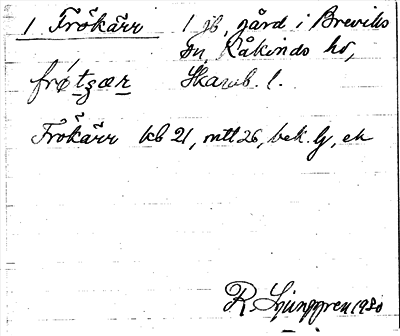 1 Frökärr 1 jb, gård i Breviks
sn, Kåkinds hd,
frö́tʂær Skarab. l.
Frökärr kb 21, mtl 26, bek. lg, ek
R. Ljunggren 1930